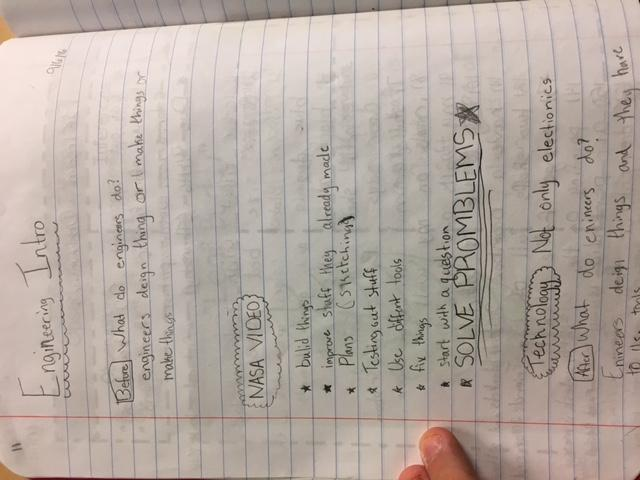 11
9/6/16
Engineering Intro
Before What do engineers do?
engineers deign thing or make things or
make things
NASA VIDEO
★ build things
★ improve stuff they already made
★ Plans (Sketching)
★ Testing out stuff
★ Use diffent tools
★ fix things
★ start with a question
★ SOLVE PROMBLEMS ★
Technology Not only electionics
After What do enineers do?
Enineers deign things and they have